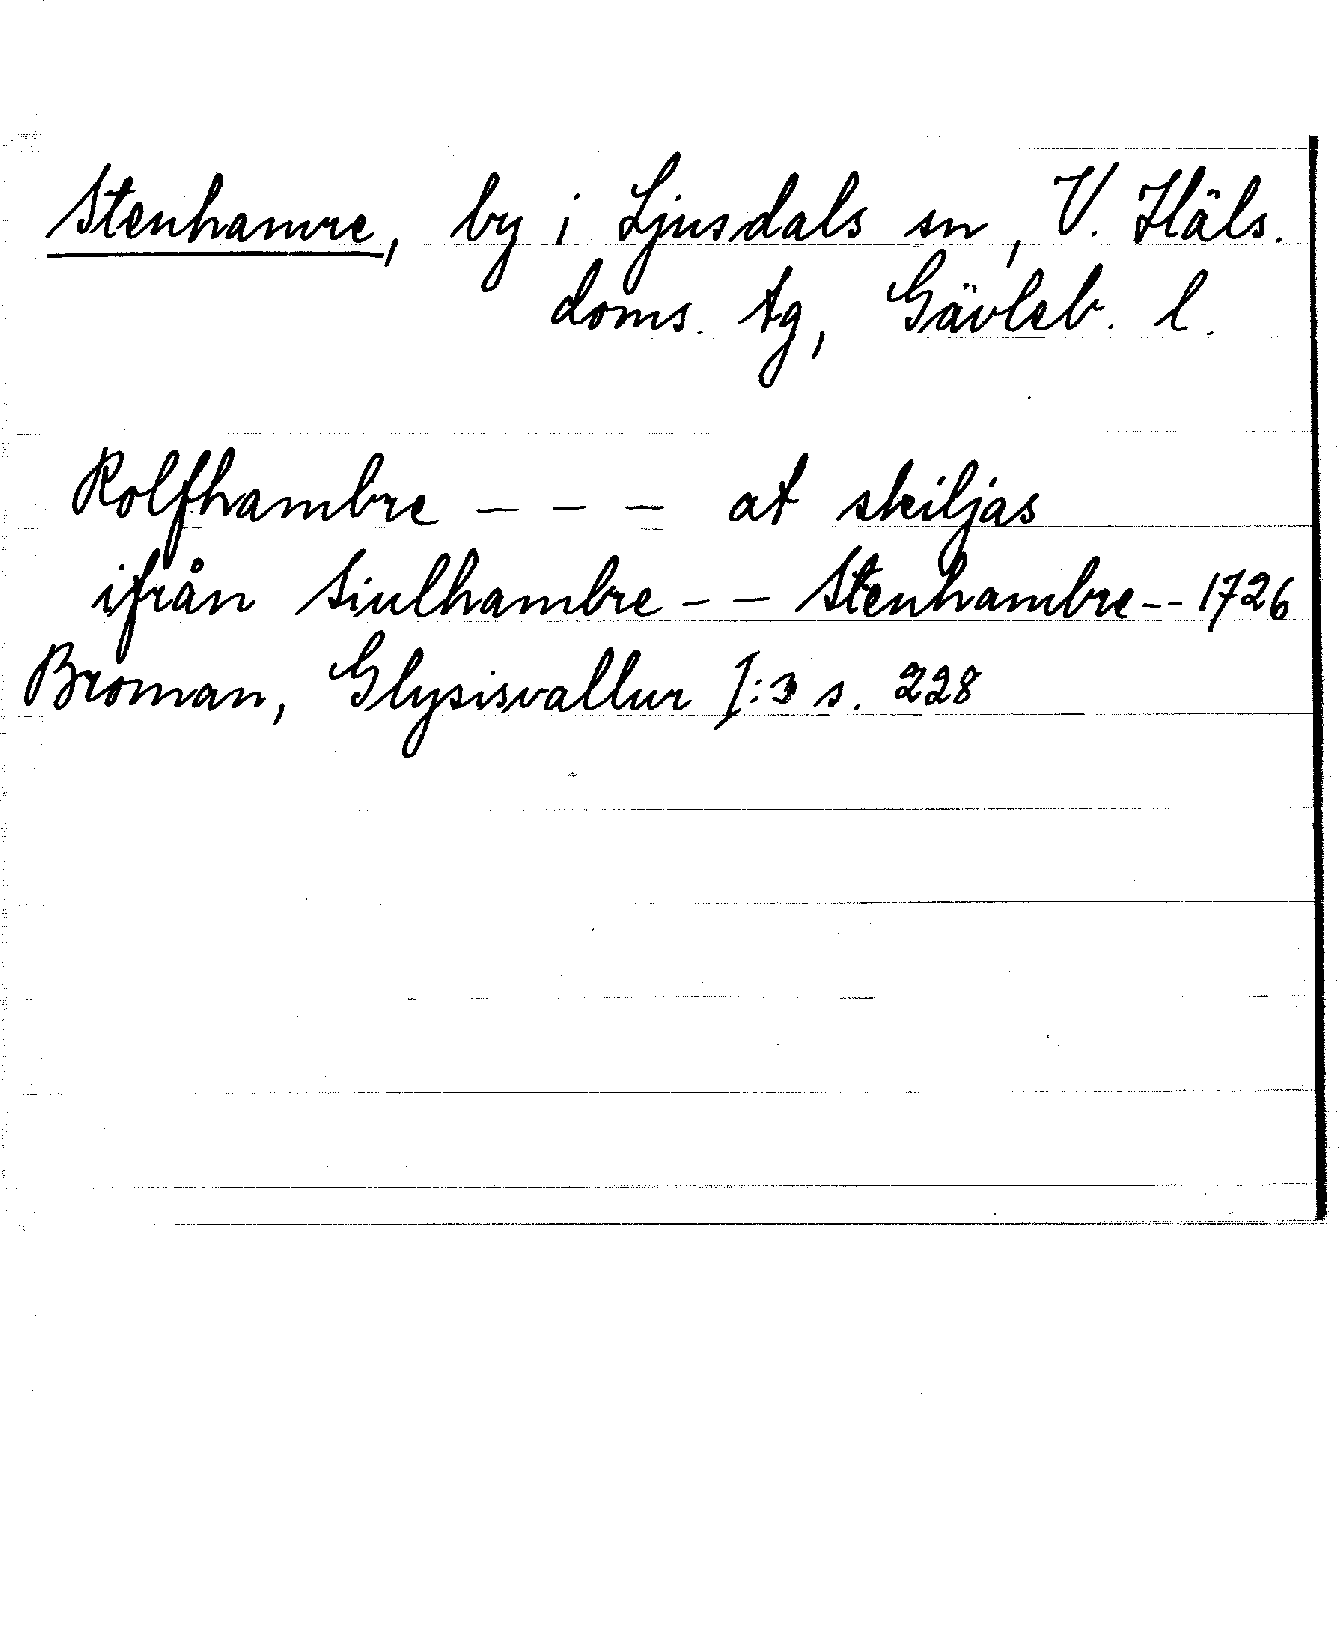 Stenhamre, by i Ljusdals sn, V. Häls.
doms. tg, Gävleb. l.
Rolfhambre - - - at skiljas
ifrån Siulhambre - - Stenhambre - - 1726
Broman, Glysisvallur I:3 s. 228